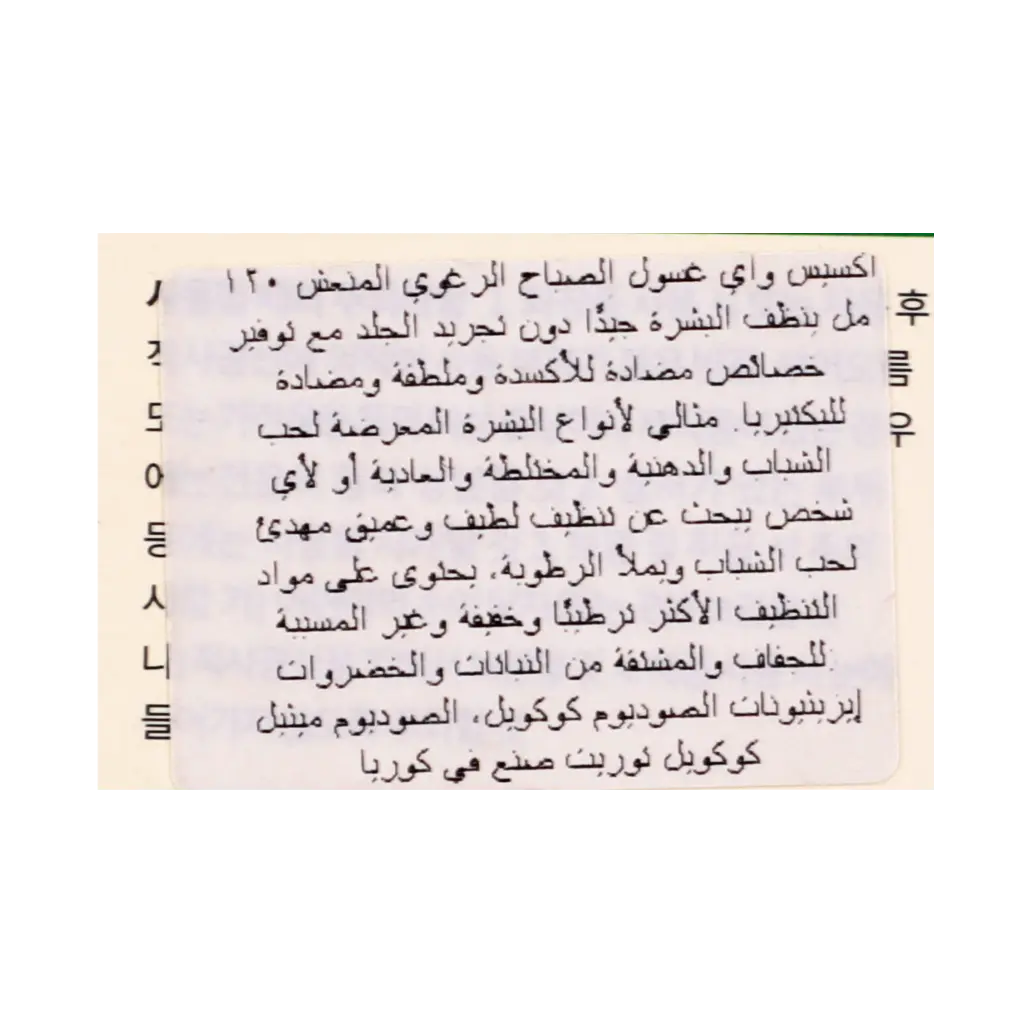 اكسبس واي غسول الصباح الرغوي المنعش ١٢٠
مل ينظف البشرة جيدًا دون تجريد الجلد مع توفير
خصائص مضادة للأكسدة وملطفة ومضادة
للبكتيريا. مثالي لأنواع البشرة المعرضة لحب
الشباب والدهنية والمختلطة والعادية أو لأي
شخص يبحث عن تنظيف لطيف وعميق مهدئ
لحب الشباب ويملأ الرطوبة، يحتوي على مواد
التنظيف الأكثر ترطيبًا وخفيفة وغير المسببة
للجفاف والمشتقة من النباتات والخضروات
إيزيثيونات الصوديوم كوكويل، الصوديوم ميثيل
كوكويل توريت صنع في كوريا
후
를
우
도
어
등
시
니
들